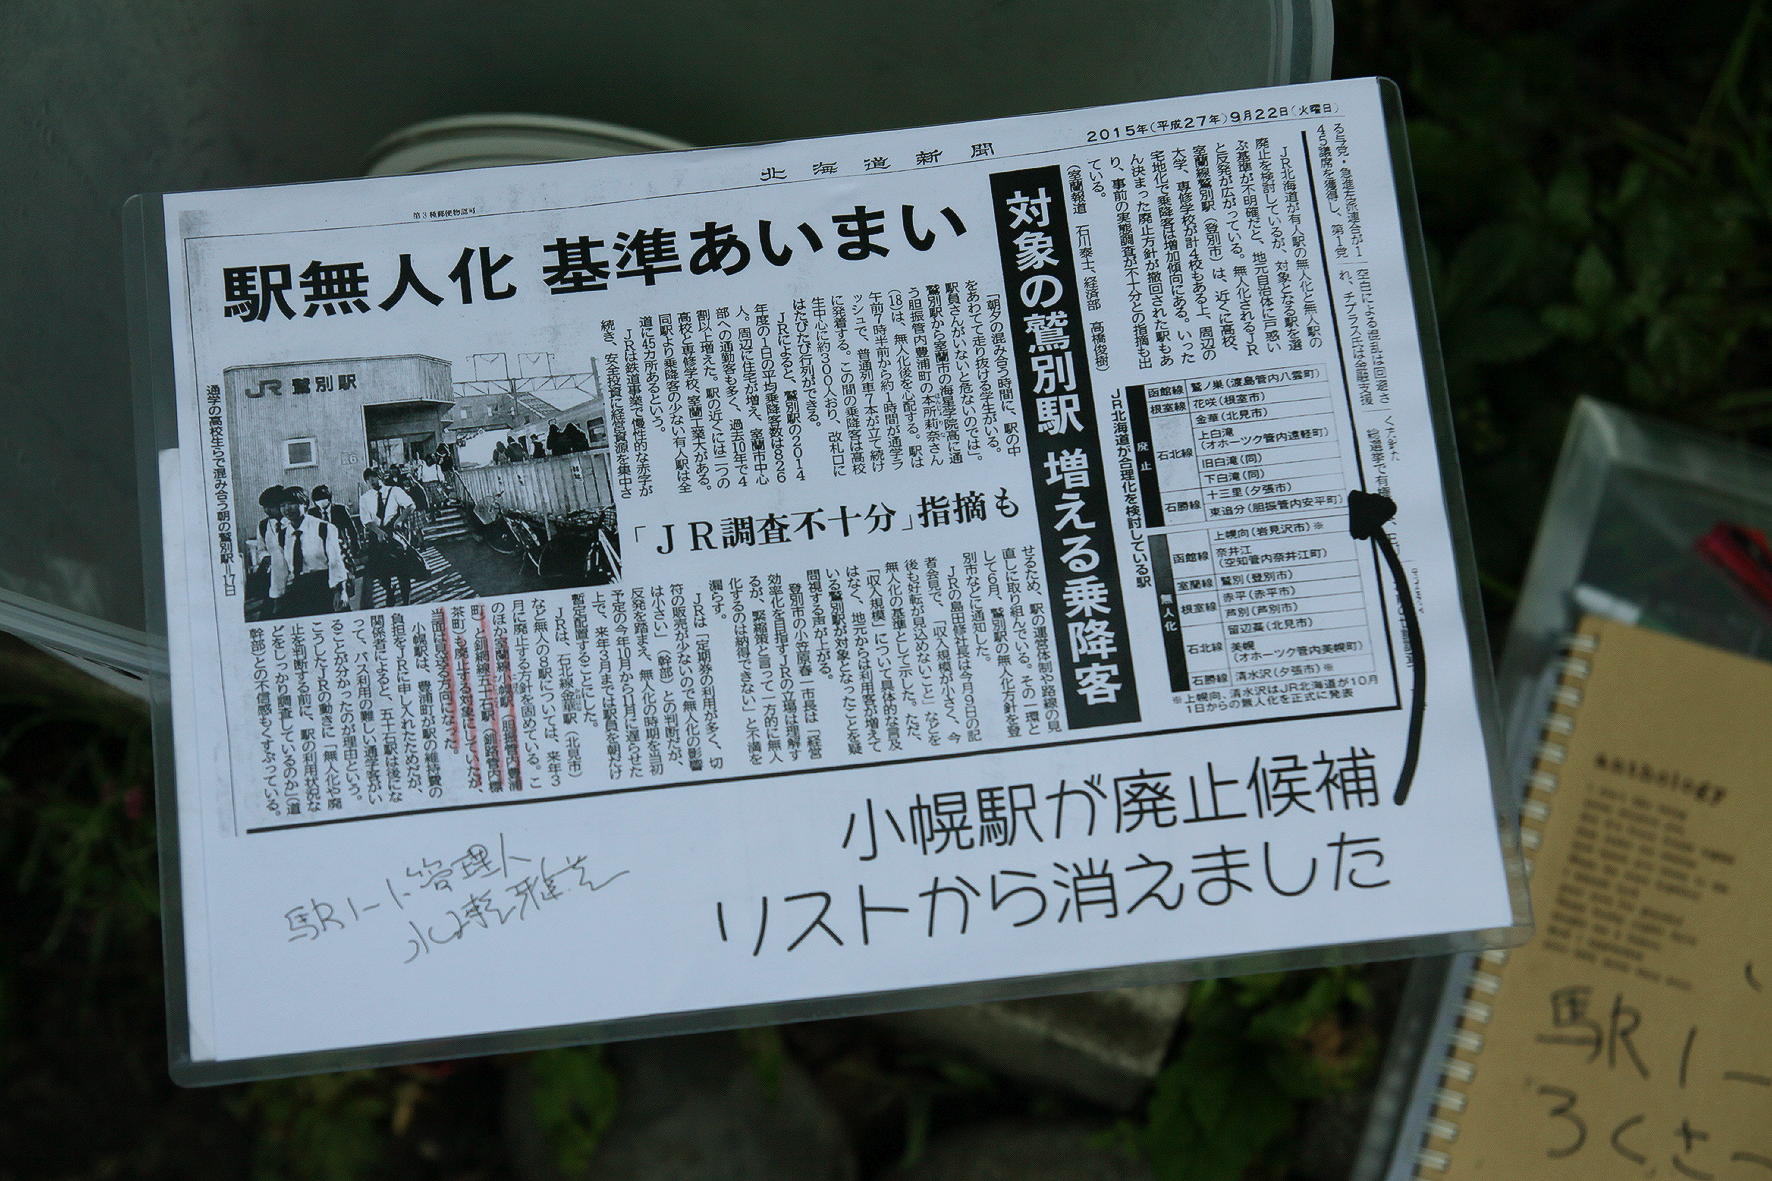 北海道新聞
2015年(平成27年)9月22日(火曜日)
第3種郵便物認可
駅無人化 基準あいまい
対象の鷲別駅 増える乗降客
「JR調査不十分」指摘も
JR北海道が有人駅の無人化と無人駅の
廃止を検討しているが、対象となる駅を選
ぶ基準が不明確だと、地元自治体に戸惑い
と反発が広がっている。無人化されるJR
室蘭線鷲別駅(登別市)は、近くに高校、
大学、専修学校が計4校もある上、周辺の
宅地化で乗降客は増加傾向にある。いった
ん決まった廃止方針が撤回された駅もあ
り、事前の実態調査が不十分との指摘も出
ている。
(室蘭報道 石川泰士、経済部 高橋俊樹)
「朝夕の混み合う時間に、駅の中
をあわてて走り抜ける学生がいる。
駅員さんがいないと危ないのでは」。
鷲別駅から室蘭市の海星学院高に通
う胆振管内豊浦町の本所莉奈さん
(18)は、無人化後を心配する。駅は
午前7時半前から約1時間が通学ラ
ッシュで、普通列車7本が立て続け
に発着する。この間の乗降客は高校
生中心に約300人おり、改札口に
はたびたび行列ができる。
JRによると、鷲別駅の2014
年度の1日の平均乗降客数は826
人。周辺に住宅が増え、室蘭市中心
部への通勤客も多く、過去10年で4
割以上増えた。駅の近くには二つの
高校と専修学校、室蘭工業大がある。
同駅より乗降客の少ない有人駅は全
道に45カ所あるという。
JRは鉄道事業で慢性的な赤字が
続き、安全投資に経営資源を集中さ
せるため、駅の運営体制や路線の見
直しに取り組んでいる。その一環と
して6月、鷲別駅の無人化方針を登
別市などに通知した。
JRの島田修社長は今月9日の記
者会見で、「収入規模が小さく、今
後も好転が見込めないこと」などを
無人化の基準として示した。ただ、
「収入規模」について具体的な言及
はなく、地元からは利用客が増えて
いる鷲別駅が対象となったことを疑
問視する声が上がる。
登別市の小笠原春一市長は「経営
効率化を目指すJRの立場は理解す
るが、緊縮策と言って一方的に無人
化するのは納得できない」と不満を
漏らす。
JRは「定期券の利用が多く、切
符の販売が少ないので無人化の影響
は小さい」(幹部)との判断だが、
反発を踏まえ、無人化の時期を当初
予定の今年10月から11月に遅らせた
上で、来年3月までは駅員を朝だけ
暫定配置することにした。
JRは、石北線金華駅(北見市)
など無人の8駅については、来年3
月に廃止する方針を固めている。こ
のほか室蘭線小幌駅(胆振管内豊浦
町)と釧網線五十石駅(釧路管内標
茶町)も廃止する対象にしていたが、
当面は見送る方向になった。
小幌駅は、豊浦町が駅の維持費の
負担をJRに申し入れたためだが、
関係者によると、五十石駅は後にな
って、バス利用の難しい通学客がい
ることが分かったのが理由という。
こうしたJRの動きに「無人化や廃
止を判断する前に、駅の利用状況な
どをしっかり調査しているのか」(道
幹部)との不信感もくすぶっている。
JR 鷲別駅
通学の高校生らで混み合う朝の鷲別駅=17日
JR北海道が合理化を検討している駅
廃止
函館線 鷲ノ巣(渡島管内八雲町)
根室線 花咲(根室市)
石北線 金華(北見市)
上白滝
(オホーツク管内遠軽町)
旧白滝(同)
下白滝(同)
石勝線 十三里(夕張市)
東追分(胆振管内安平町)
無人化
函館線 上幌向(岩見沢市)※
奈井江
(空知管内奈井江町)
室蘭線 鷲別(登別市)
根室線 赤平(赤平市)
芦別(芦別市)
石北線 留辺蘂(北見市)
美幌
(オホーツク管内美幌町)
石勝線 清水沢(夕張市)※
※上幌向、清水沢はJR北海道が10月
1日からの無人化を正式に発表
る与党・急進左派連合が1
45議席を獲得し、第1党
小幌駅が廃止候補
リストから消えました
駅ノート管理人
anthology
駅ノー
3くさつ